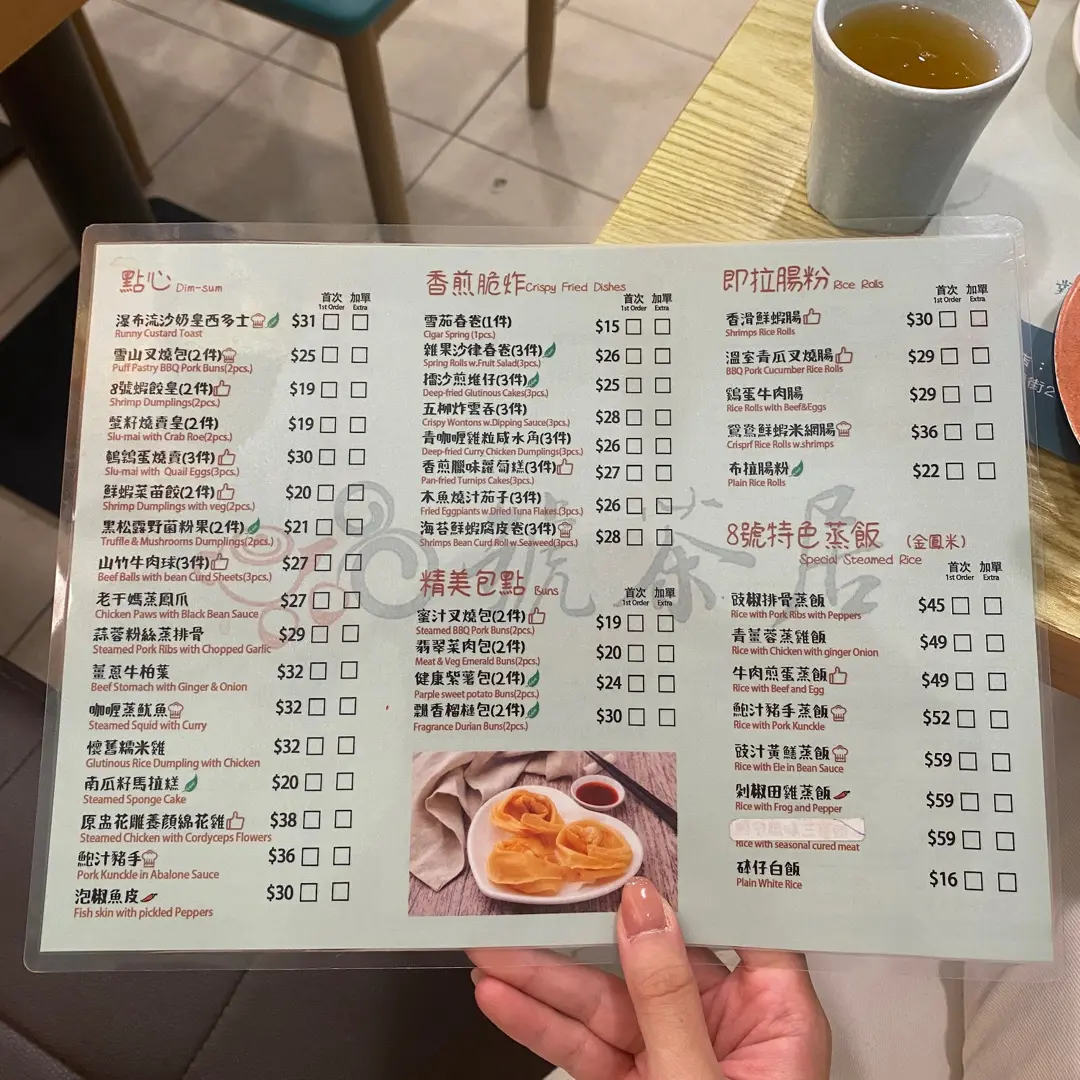 點心 Dim-sum
首次 加單
1st Order Extra
瀑布流沙奶皇西多士 $31
Runny Custard Toast
雪山叉燒包(2件) $25
Puff Pastry BBQ Pork Buns(2pcs.)
8號蝦餃皇(2件) $19
Shrimp Dumplings(2pcs.)
蟹籽燒賣皇(2件) $19
Slu-mai with Crab Roe(2pcs.)
鵪鶉蛋燒賣(3件) $30
Slu-mai with Quail Eggs(3pcs.)
鮮蝦菜苗餃(2件) $20
Shrimp Dumplings with veg(2pcs.)
黑松露野菌粉果(2件) $21
Truffle & Mushrooms Dumplings(2pcs.)
山竹牛肉球(3件) $27
Beef Balls with bean Curd Sheets(3pcs.)
老干媽蒸鳳爪 $27
Chicken Paws with Black Bean Sauce
蒜蓉粉絲蒸排骨 $29
Steamed Pork Ribs with Chopped Garlic
薑蔥牛柏葉 $32
Beef Stomach with Ginger & Onion
咖喱蒸魷魚 $32
Steamed Squid with Curry
懷舊糯米雞 $32
Glutinous Rice Dumpling with Chicken
南瓜籽馬拉糕 $20
Steamed Sponge Cake
原盅花雕養顏綿花雞 $38
Steamed Chicken with Cordyceps Flowers
鮑汁豬手 $36
Pork Kunckle in Abalone Sauce
泡椒魚皮 $30
Fish skin with pickled Peppers
香煎脆炸 Crispy Fried Dishes
首次 加單
1st Order Extra
雪茄春卷(1件) $15
Cigar Spring (1pcs.)
雜果沙律春卷(3件) $26
Spring Rolls w.Fruit Salad(3pcs.)
擂沙煎堆仔(3件) $25
Deep-fried Glutinous Cakes(3pcs.)
五柳炸雲吞(3件) $28
Crispy Wontons w.Dipping Sauce(3pcs.)
青咖喱雞粒咸水角(3件) $26
Deep-fried Curry Chicken Dumplings(3pcs.)
香煎臘味蘿蔔糕(3件) $27
Pan-fried Turnips Cakes(3pcs.)
木魚燒汁茄子(3件) $26
Fried Eggplants w.Dried Tuna Flakes.(3pcs.)
海苔鮮蝦腐皮卷(3件) $28
Shrimps Bean Curd Roll w.Seaweed(3pcs.)
精美包點 Buns
首次 加單
1st Order Extra
蜜汁叉燒包(2件) $19
Steamed BBQ Pork Buns(2pcs.)
翡翠菜肉包(2件) $20
Meat & Veg Emerald Buns(2pcs.)
健康紫薯包(2件) $24
Parple sweet potato Buns(2pcs.)
飄香榴槤包(2件) $30
Fragrance Durian Buns(2pcs.)
即拉腸粉 Rice Rolls
首次 加單
1st Order Extra
香滑鮮蝦腸 $30
Shrimps Rice Rolls
溫室青瓜叉燒腸 $29
BBQ Pork Cucumber Rice Rolls
鷄蛋牛肉腸 $29
Rice Rolls with Beef&Eggs
鴛鴦鮮蝦米網腸 $36
Crisprf Rice Rolls w.shrimps
布拉腸粉 $22
Plain Rice Rolls
8號特色蒸飯 (金鳳米)
Special Steamed Rice
首次 加單
1st Order Extra
豉椒排骨蒸飯 $45
Rice with Pork Ribs with Peppers
青薑蓉蒸雞飯 $49
Rice with Chicken with ginger Onion
牛肉煎蛋蒸飯 $49
Rice with Beef and Egg
鮑汁豬手蒸飯 $52
Rice with Pork Kunckle
豉汁黃鱔蒸飯 $59
Rice with Ele in Bean Sauce
剁椒田雞蒸飯 $59
Rice with Frog and Pepper
$59
Rice with seasonal cured meat
砵仔白飯 $16
Plain White Rice
8號茶居
店：
街2